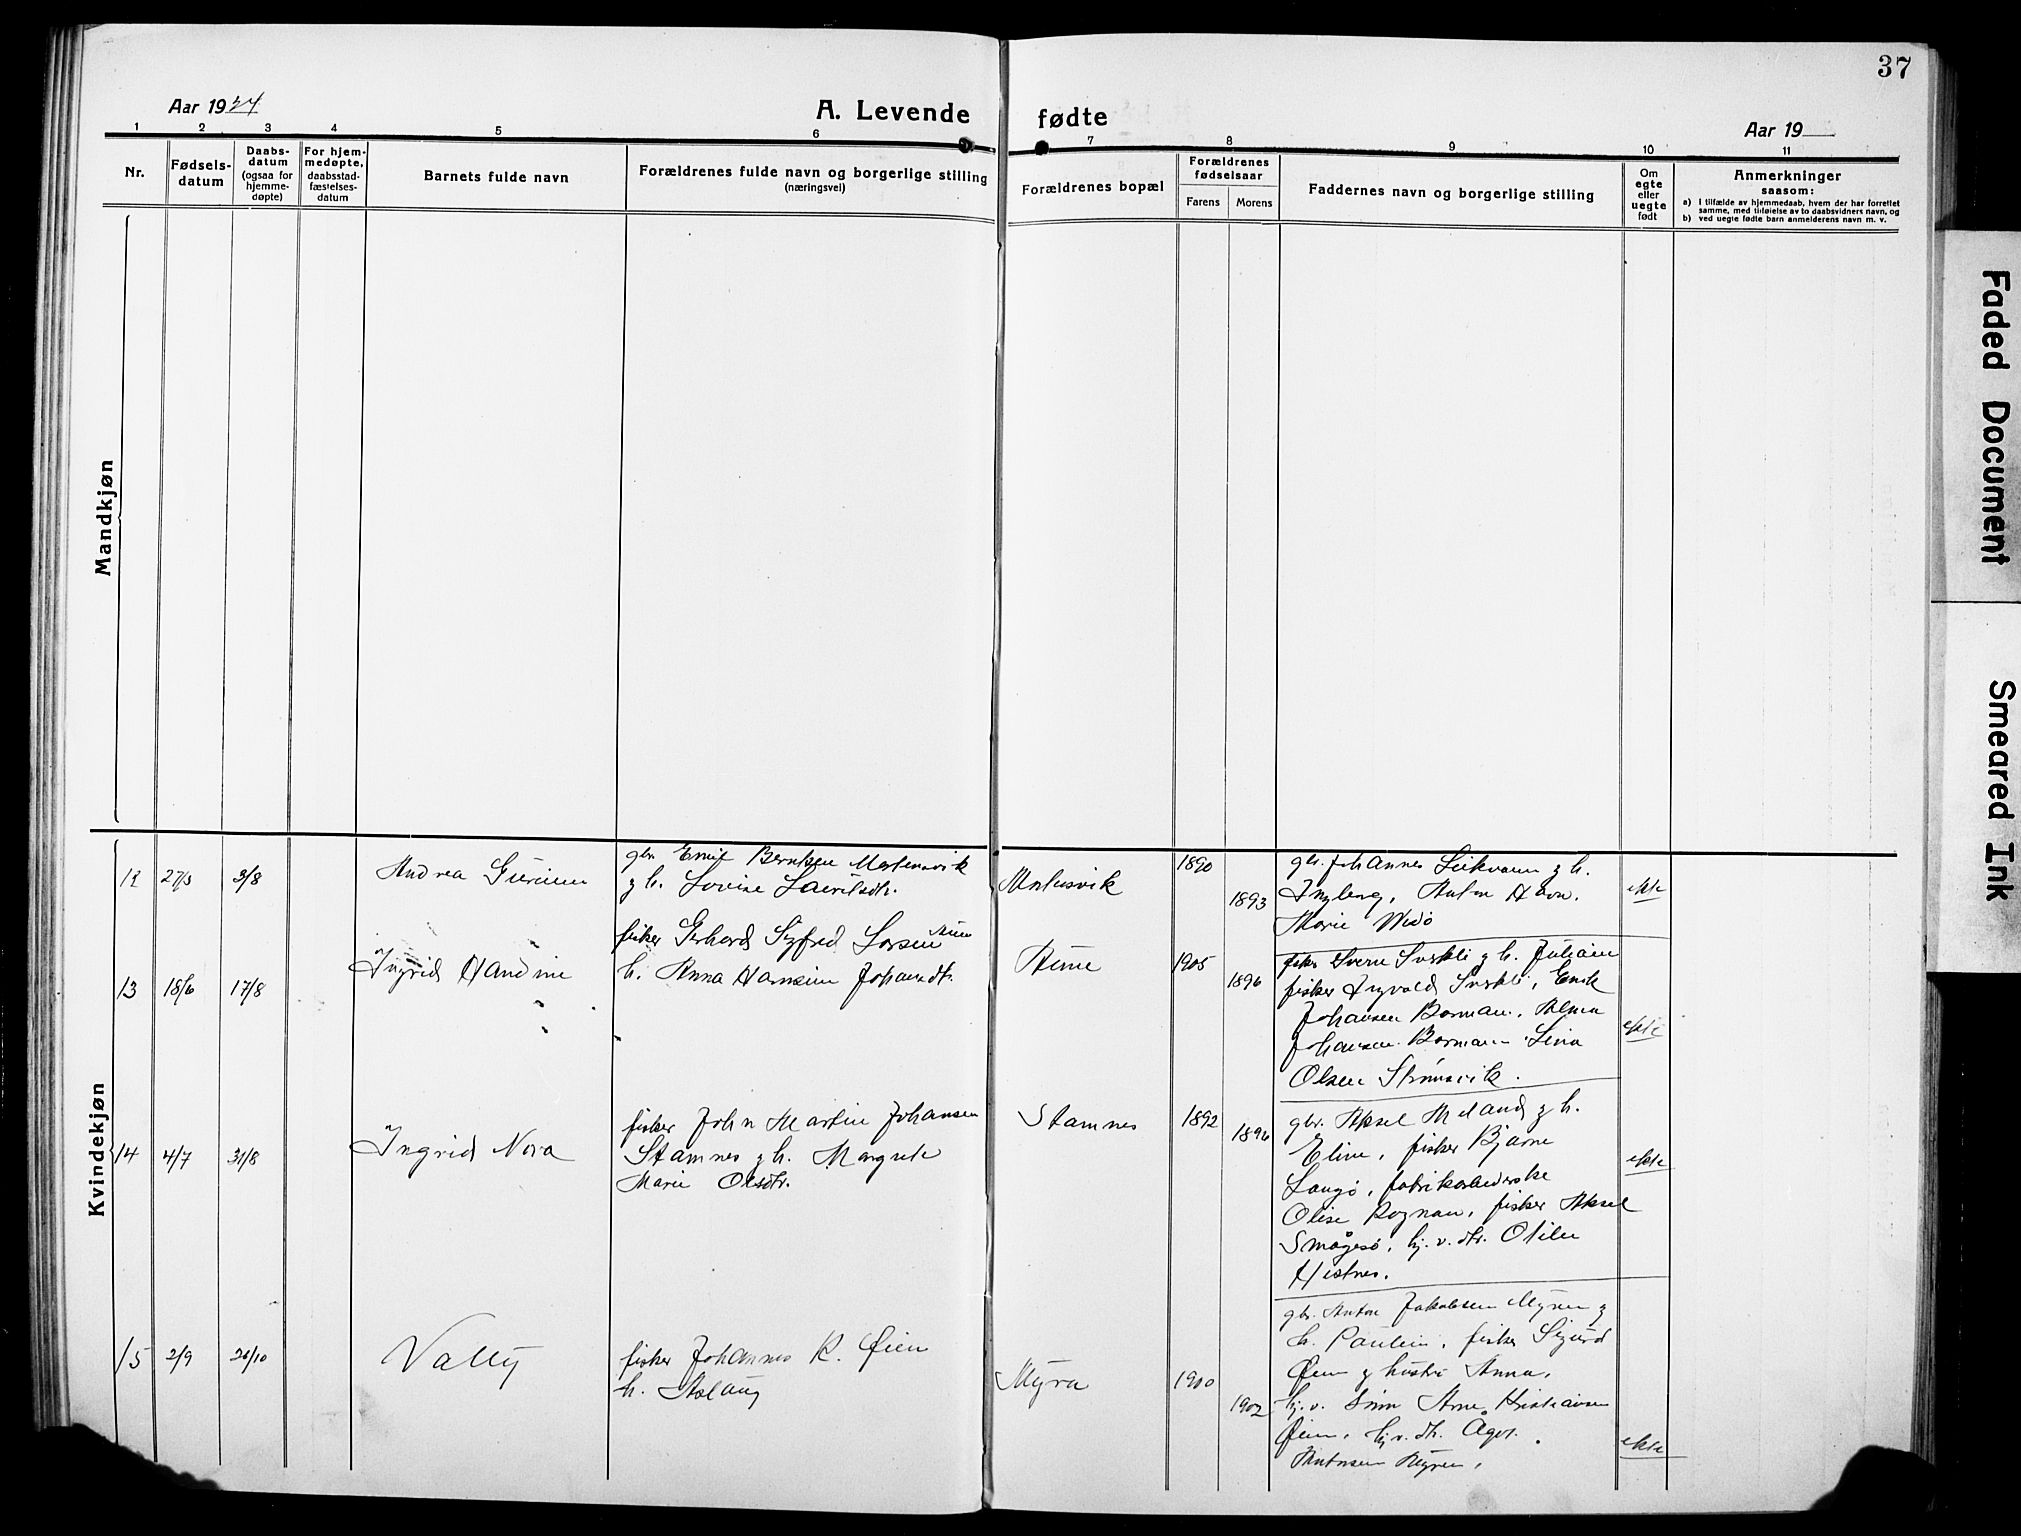 37
Aar 1924
A. Levende fødte
Aar 19
1 2 3 4 5 6 7 8 9 10 11
Nr.
Fødsels-
datum
Daabs-
datum
(ogsaa for
hjemme-
døpte)
For hjem-
medøpte,
daabsstad-
fæstelses-
datum
Barnets fulde navn
Forældrenes fulde navn og borgerlige stilling
(næringsvei)
Forældrenes bopæl
Forældrenes
fødselsaar
Farens
Morens
Faddernes navn og borgerlige stilling
Om
egte
eller
uegte
født
Anmerkninger
saasom:
a) I tilfælde av hjemmedaab, hvem der har forrettet
samme, med tilføielse av to daabsvidners navn, og
b) ved uegte fødte barn anmelderens navn m. v.
Mandkjøn
Kvindekjøn
12 27/5 3/8
Andrea
gbr. Emil Berntsen Mortensvik
g h. Lovise Lauritsdtr.
1890
1893
gbr. Johannes g h.
Ingeborg, Anton Havn.
Marie
ekte
13 18/6 17/8
Ingrid Handine
fisker Gerhard Sigfred Larsen
h. Anna Hansine Johansdtr.
1905
1896
g h. Juliane
fisker Ingvald
Johansen Borman, Alma
Johansen Borman Lina
Olsen Strømsvik.
ekte
14 4/7 31/8
Ingrid Nora
fisker John Martin Johansen
Stamnes g h. Margrete
Marie Olsdtr.
Stamnes
1892
1896
gbr. Aksel g h.
Eline, fisker Bjarne
Langø, fabrikarbeiderske
Olise Rognan, fisker Aksel
Smågesø, hj. v. dtr. Otilie
Histnes.
ekte
15 2/9 26/10
Vally
fisker Johannes K. Øien
h. Aslaug
Myra
1900
1902
gbr. Anton Jakobsen Myren g
h. Pauline, fisker Sigurd
Øien g hustru Anna,
hj. v. sønn Arne Kristiansen
Øien, hj. v. dtr. Ågot
Antonsen Myren.
ekte
Faded Document
Smeared Ink